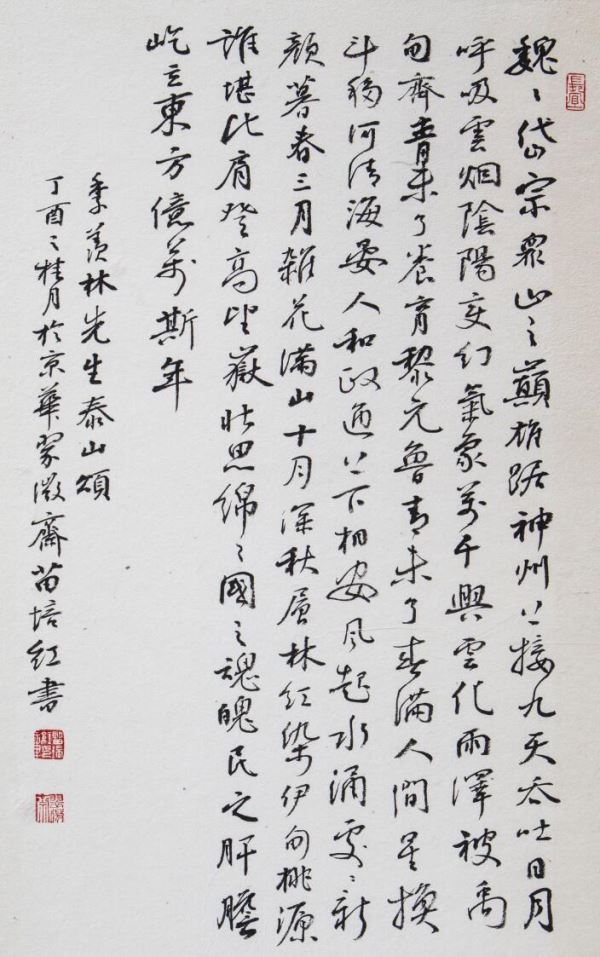 魏〻岱宗衆山之巔雄踞神州上接九天吞吐日月
呼吸雲烟陰陽变幻氣象萬千興雲化雨澤被禹
甸齊青未了養育黎元魯青未了春滿人間星換
斗移河清海晏人和政通上下相安风起水涌處〻新
顏暮春三月雜花滿山十月深秋層林红染伊甸桃源
誰堪比肩登高望嶽壯思綿〻國之魂魄民之肝膽
屹立東方億萬斯年
季羡林先生泰山頌
丁酉〻桂月於京華蒙澂齋苗培红書